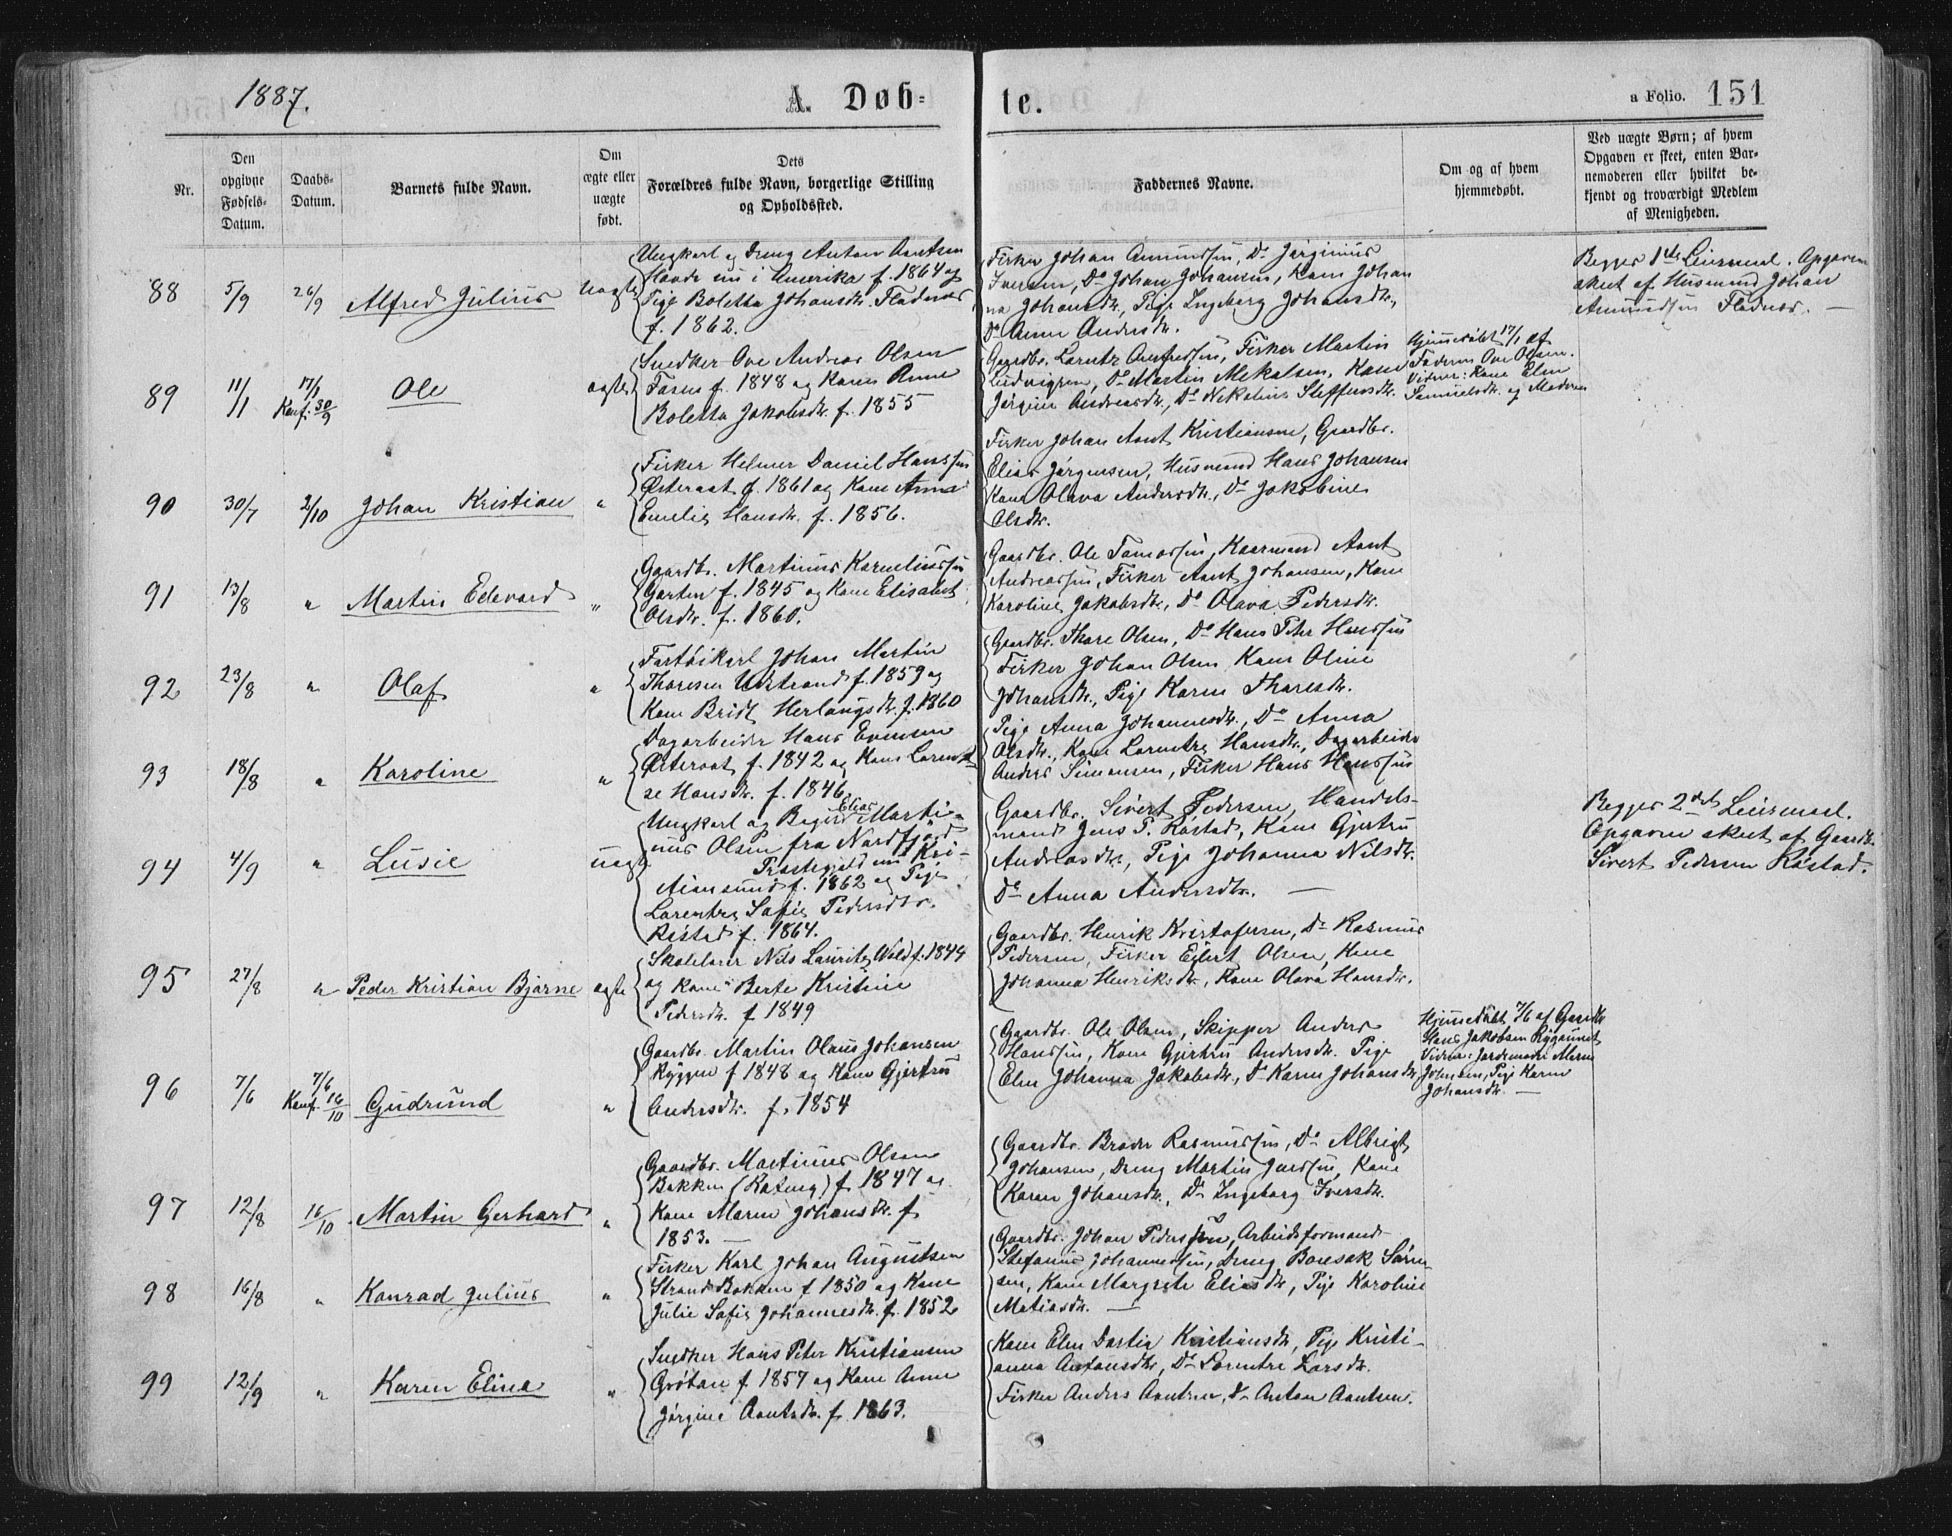 1887.
A. Døb-
te.
a Folio. 151
Nr.
Den opgivne Fødsels-Datum.
Daabs-Datum.
Barnets fulde Navn.
Om ægte eller uægte født.
Dets Forældres fulde Navn, borgerlige Stilling og Opholdssted.
Faddernes Navne.
Om og af hvem hjemmedøbt.
Ved uægte Børn; af hvem Opgaven er skeet, enten Barnemoderen eller hvilket bekjendt og troværdigt Medlem af Menigheden.
88 5/9 26/9 Alfred Julius uægte
Ungkarl og Dreng Anton Aantsen
nu i Amerika f. 1864 og
Pige Boletta Johansdtr. Fladnes
f. 1862.
Fisker Johan Amundssen, Do Jørginius
Iversen, Do Johan Johansen, Kone Johan
na Johansdtr., Pige Ingeborg Johansdtr.,
Do Anne Andersdtr.
Begges 1ste Leiermaal. Opgaven
skeet af Husmand Johan
Amundssen Fladnes. —
89 11/1 17/1 Konf. 30/9 Ole ægte
Snedker Ove Andreas Olsen
f. 1848 og Kone Anne
Boletta Jakobsdtr. f. 1855
Gaardbr. Lorentz, Fisker Martin
Ludvigsen, Do Martin Mekalsen, Kone
Jørgine Andreasdtr., Do Nikoline Steffensdtr.
Hjemmedøbt 17/1 af
Faderen Ove Olsen.
Vidner: Kone Elen
Samuelsdtr. og Moderen
90 30/7 2/10 Johan Kristian "
Fisker Helmer Daniel Hanssen
Østeraat f. 1861 og Kone Anna
Emelie Hansdtr. f. 1856.
Fisker Johan Aant Kristiansen, Gaardbr.
Elias Jørgensen, Husmand Hans Johansen
Kone Olava Andersdtr., Do Jakobine
Olsdtr.
91 13/8 " Martin Edevard "
Gaardbr. Martinus Korneliussen
Garten f. 1845 og Kone Elisabet
Olsdtr. f. 1860.
Gaardbr. Ole Tomassen, Kaarmand Aant
Andreassen, Fisker Aant Johansen, Kone
Karoline Jakobsdtr., Do Olava Pedersdtr.
92 23/8 " Olaf "
Fartøikarl Johan Martin
Thoresen Udstrand f. 1859 og
Kone Bridt Herlaugsdtr. f. 1860
Gaardbr. Thore Olsen, Do Hans Peter Hanssen
Fisker Johan Olsen, Kone Oline
Johansdtr., Pige Karen Tharesdtr.
93 18/8 " Karoline "
Dagarbeider Hans Evensen
Østeraat f. 1842 og Kone Lorent
se Hansdtr. f. 1846.
Pige Anna Johannesdtr., Do Anna
Olsdtr., Kone Lorentze Hansdtr., Dagarbeider
Anders Simonsen, Fisker Hans Hanssen
94 4/9 " Lusie uægte
Ungkarl og Bager Elias Marti-
nus Olsen fra Nordfjord
Præstegjeld nu Kri-
stiansund f. 1862 og Pige
Lorentze Sofie Pedersdtr.
Røstad f. 1864.
Gaardbr. Sivert Pedersen, Handels-
mand Jens P. Røstad, Kone Gjertru
Andreasdtr., Pige Johanna Nilsdtr.
Do Anna Andersdtr. —
Begges 2det Leiermaal.
Opgaven skeet af Gaardbr.
Sivert Pedersen Røstad.
95 27/8 " Peder Kristian Bjarne ægte
Skolelærer Nils Lauritz Wold f. 1844
og Kone Berte Kristine
Pedersdtr. f 1849
Gaardbr. Henrik Kristofersen, Do Rasmus
Pedersen, Fisker Eilert Olsen, Kone
Johanna Henriksdtr., Kone Olava Hansdtr.
96 7/6 7/6 Konf. 16/10 Gudrund "
Gaardbr. Martin Olaus Johansen
Ryggen f 1848 og Kone Gjertru
Andersdtr. f. 1854
Gaardbr. Ole Olsen, Skipper Anders
Hanssen, Kone Gjertru Andersdtr. Pige
Elen Johanna Jakobsdtr., Do Karen Johansdtr.
Hjemmedøbt 7/6 af Gaardbr.
Hans Jakobsen
Vidner: Jordemoder Maren
Johnsen, Pige Karen
Johansdtr. —
97 12/8 16/10 Martin Gerhard "
Gaardbr. Martinus Olsen
Bakken (Kateng) f. 1847 og
Kone Maren Johansdtr. f
1853. —
Gaardbr. Broder Rasmussen, Do Albrigt
Johansen, Dreng Martin Jenssen, Kone
Karen Johansdtr., Do Ingeborg Iversdtr.
98 16/8 " Konrad Julius "
Fisker Karl Johan Augustsen
Strand Bakken f 1850 og Kone
Julie Sofie Johannesdtr. f. 1852
Gaardbr. Johan Pederssen, Arbeidsformand
Stefanus Johannessen, Dreng Boresak Søren-
sen, Kone Margrete Eliasdtr., Pige Karoline
Matiasdtr. —
99 12/9 " Karen Elina "
Snedker Hans Peter Kristiansen
Grøtan f 1857 og Kone Anne
Jørgine Aantsdtr. f. 1863.
Kone Elen Dortea Kristiansdtr., Pige Kristi-
anna Antonsdtr., Do Lorentze Larsdtr.
Fisker Anders Aantsen, Do Anton Aantsen.